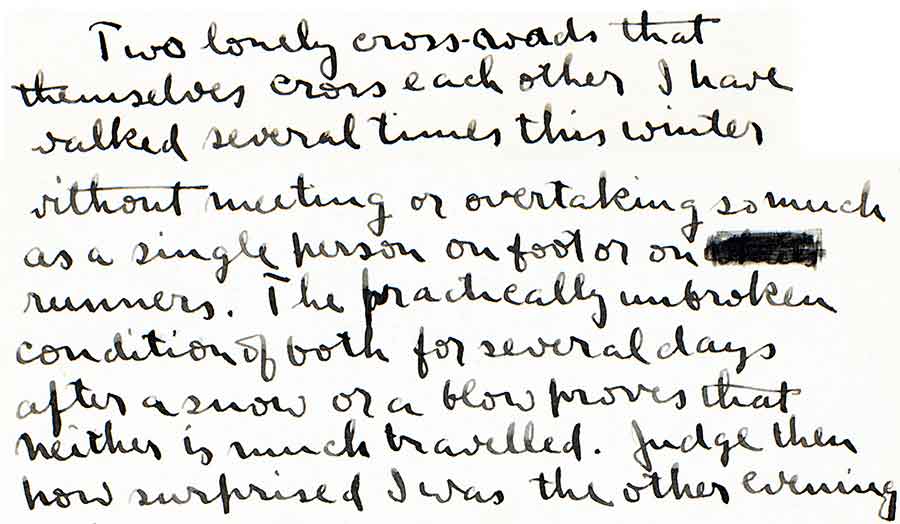 Two lonely cross-roads that
themselves cross each other I have
walked several times this winter
without meeting or overtaking so much
as a single person on foot or on
runners. The practically unbroken
condition of both for several days
after a snow or a blow proves that
neither is much travelled. Judge then
how surprised I was the other evening